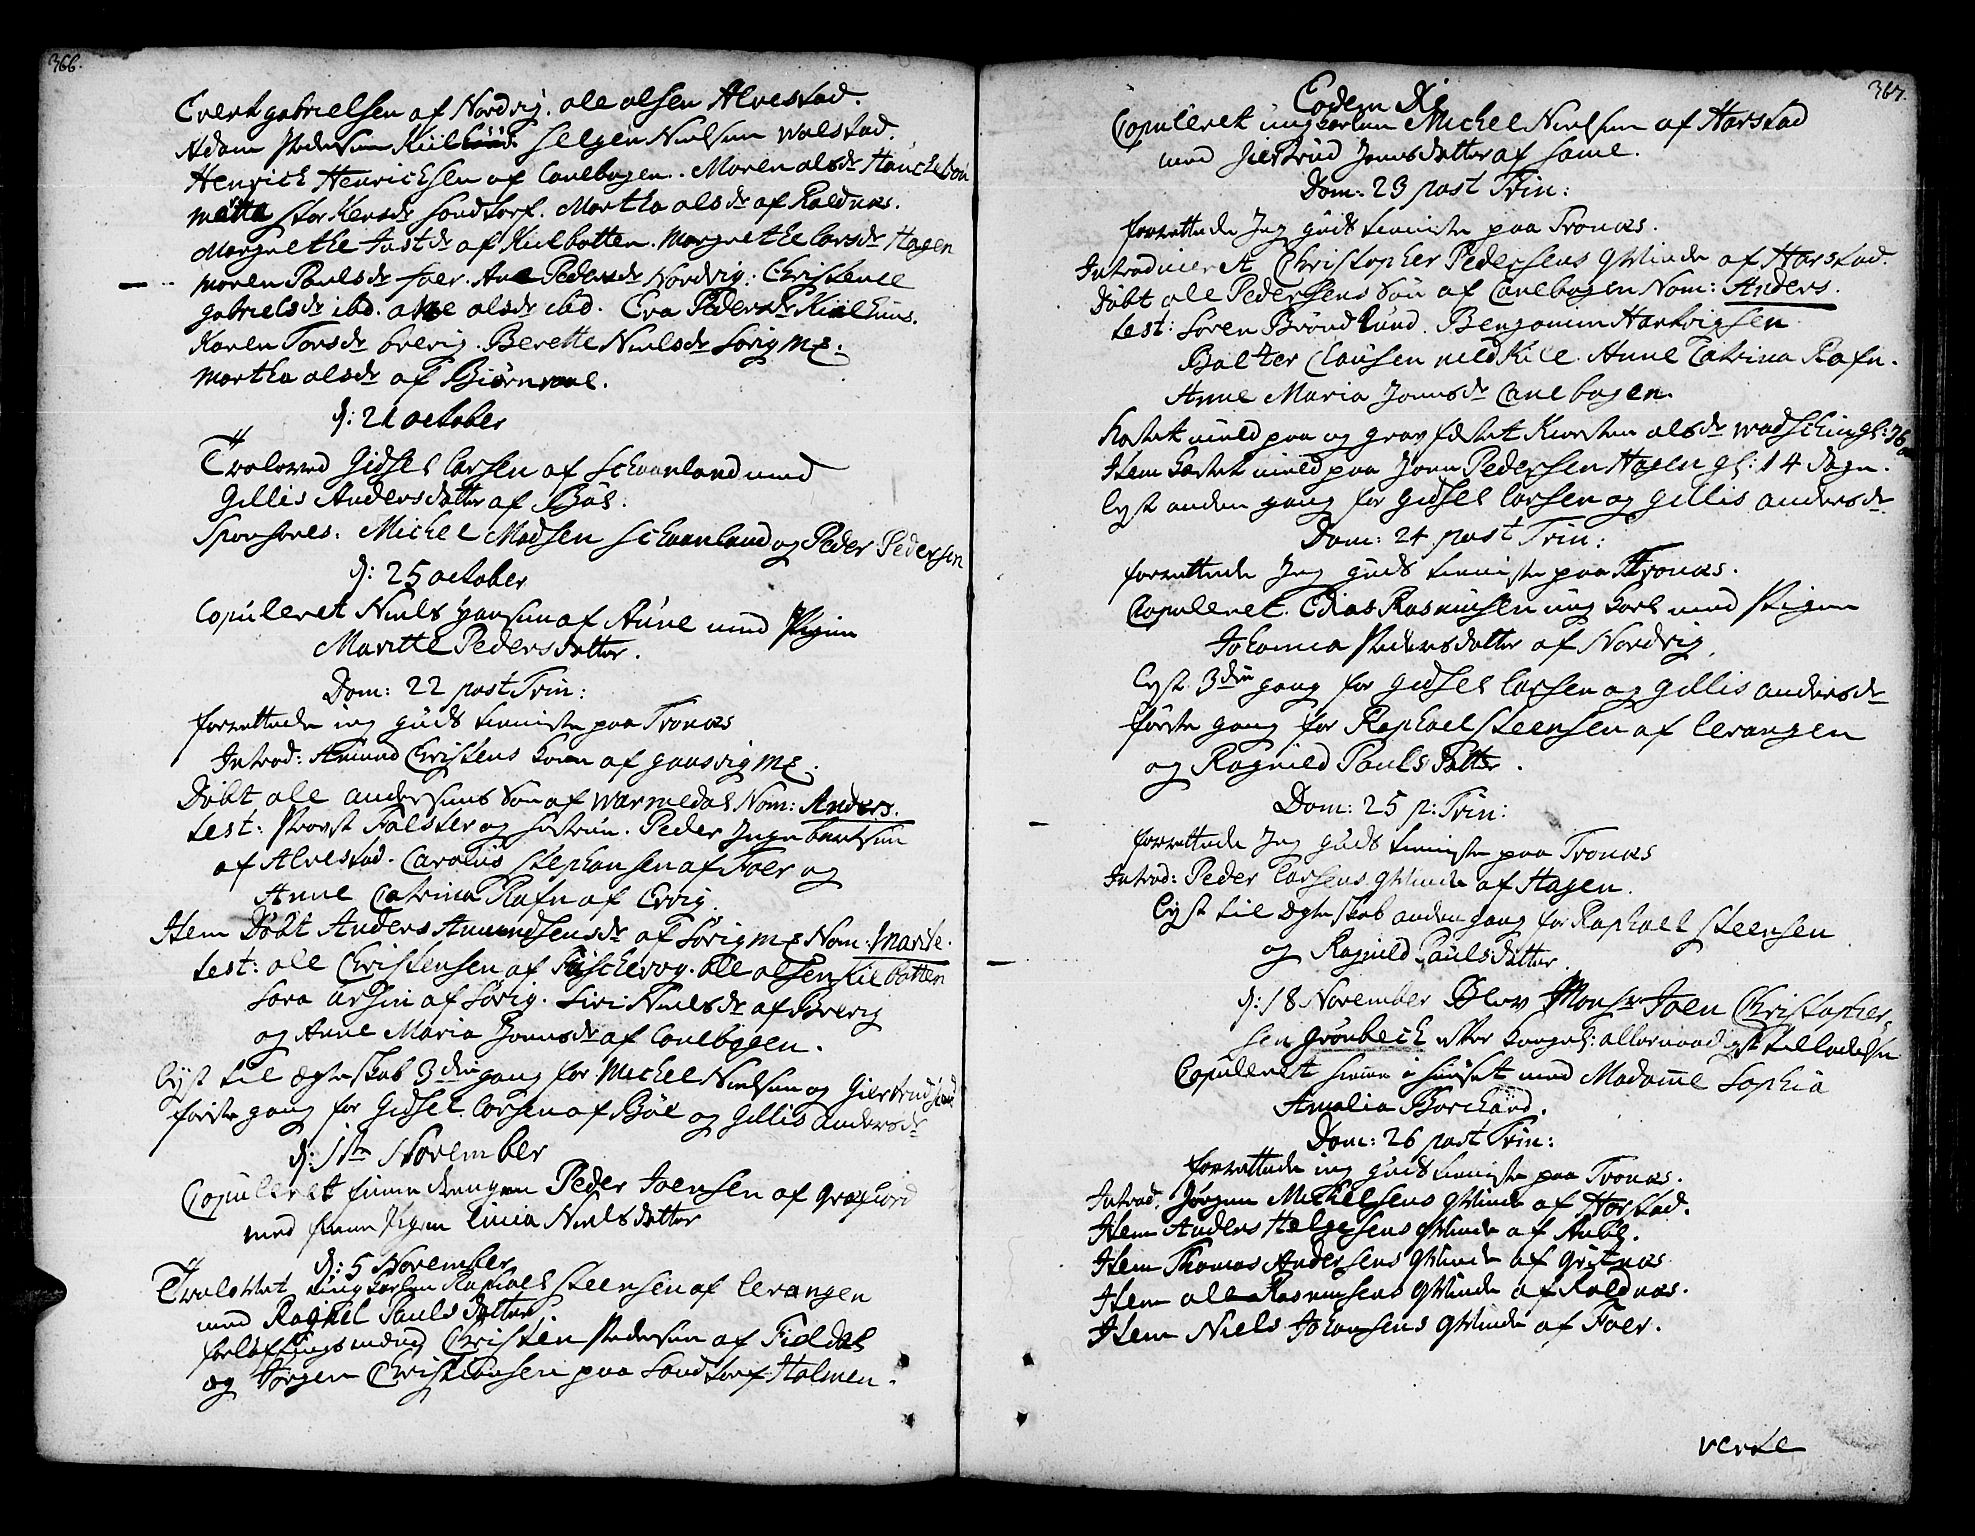 366.
Evert gabrielsen af Nordvig. ole olsen Alvestad.
Adam Pedersen Kiil selgen Nielsen Wolstad.
Henrich Henrichsen af Canebogen. Maren olsdr
mætte storkersdr sandtorf. Martha olsdr af Roldnæs.
Margrethe Jastdr af Kielbotten. Margrethe larsdr Hagen
maren Paulsdr foer. Ane Pedersdr Nordvig: Christense
gabrielsdr ibd. ane olsdr ibd. Eva Pedersdr Kielhuus.
Karen Torsdr brevig. Berette Nielsdr Sørig
martha olsdr af
d: 21 october
Troloved Gidsel larsen af schaanland med
Gillis Andersdatter af Bøl.
Sponsores. Michel Madsen schaanland og Peder Pedersen
d: 25 october
Copuleret Niels Hansen af Aune med Pigen
Maritte Pedersdatter.
Dom: 22 post Trin:
forrettede ieg guds tieniste paa Tronæs
Introd: Amund Christens kone af gaasvig
Døbt ole andersens Søn af warmedal Nom: Anders.
test: Provst Falster og hustrue. Peder Ingebrectsen
af Alvestad. Carolus stephansen af Foer og
Anne Catrina Rafn af Ervig.
Item Døbt Anders Amundsens dr af Sørig Nom: Marite.
test: ole Christensen af ole olsen kilbotten
Sara af Sørig. Siri Nielsdr af Brevig
og Anne Maria Jonnsdr af Canebogen.
lyst til ægteskab 3die gang for Michel Nielsen og Giertrud
første gang for Gidsel larsen af Bøl og Gillis andersdr
d: 1te November
Copuleret finne drengen Peder Joensen af
med finne Pigen linia Nielsdatter
d: 5 November
Trolovet ungkarlen Raphael steensen af lerangen
med Ragnel Paulsdatter
forløfningsmænd Christen Pedersen af Fieldal
og Jørgen Christiansen paa Sandtorf: Holmen.
367.
Eodem Die
Copuleret ungkarlen Michel Nielsen af Harstad
med Jiertrud Jonnsdatter af same.
Dom: 23 post Trin:
forrettede Jeg guds tieniste paa Tronæs.
Introduceret Christopher Pedersens Qvinde af Harstad.
Døbt ole Pedersens Søn af Canebogen Nom: Anders.
test: Soren Brøndlund. Benjamin Hartvigsen
Balter Clausen nedKile. Anne Catrina Rafn.
Anne Maria Jonnsdr Canebogen.
Kastet muld paa og gravfæstet Kiersten olsdr
Item Kastet muld paa Jonn Pedersen Hagen gl: 14 dage.
lyst anden gang for Gidsel larsen og Gillis andersdr
Dom: 24 post Trin:
forrettede Jeg guds tieniste paa Tronæs.
Copuleret Elias Rasmussen ung karl med Pigen
Johanna Pedersdatter af Nordvig.
lyst 3die gang for Gidsel larsen og Gillis andersdr
første gang for Raphael steensen af lerangen
og Ragnild Paulsdatter.
Dom: 25 p: Trin:
forrettede Jeg guds tieniste paa Tronæs
Introd: Peder larsens Qvinde af Hagen.
lyst til ægteskab anden gang for Raphael steensen
og Ragnild Paulsdatter.
d: 18 November Blev Monsr Joen Christopher-
sen grønbech efter kongel: allernaadigst tilladelse
Copuleret hieme i huuset med Madamme Sophia
Amalia Borchard.
Dom: 26 post Trin:
forrettede ieg guds tieniste paa Tronæs.
Introd. Jørgen Michelsens Qvinde af Harstad.
Item Anders Helgesens Qvinde af Aubl.
Item Thomas Andersens Qvinde af Grøtnæs
Item ole Rasmusens Qvinde af Roldnæs.
Item Niels Johansens Qvinde af Foer.
verte